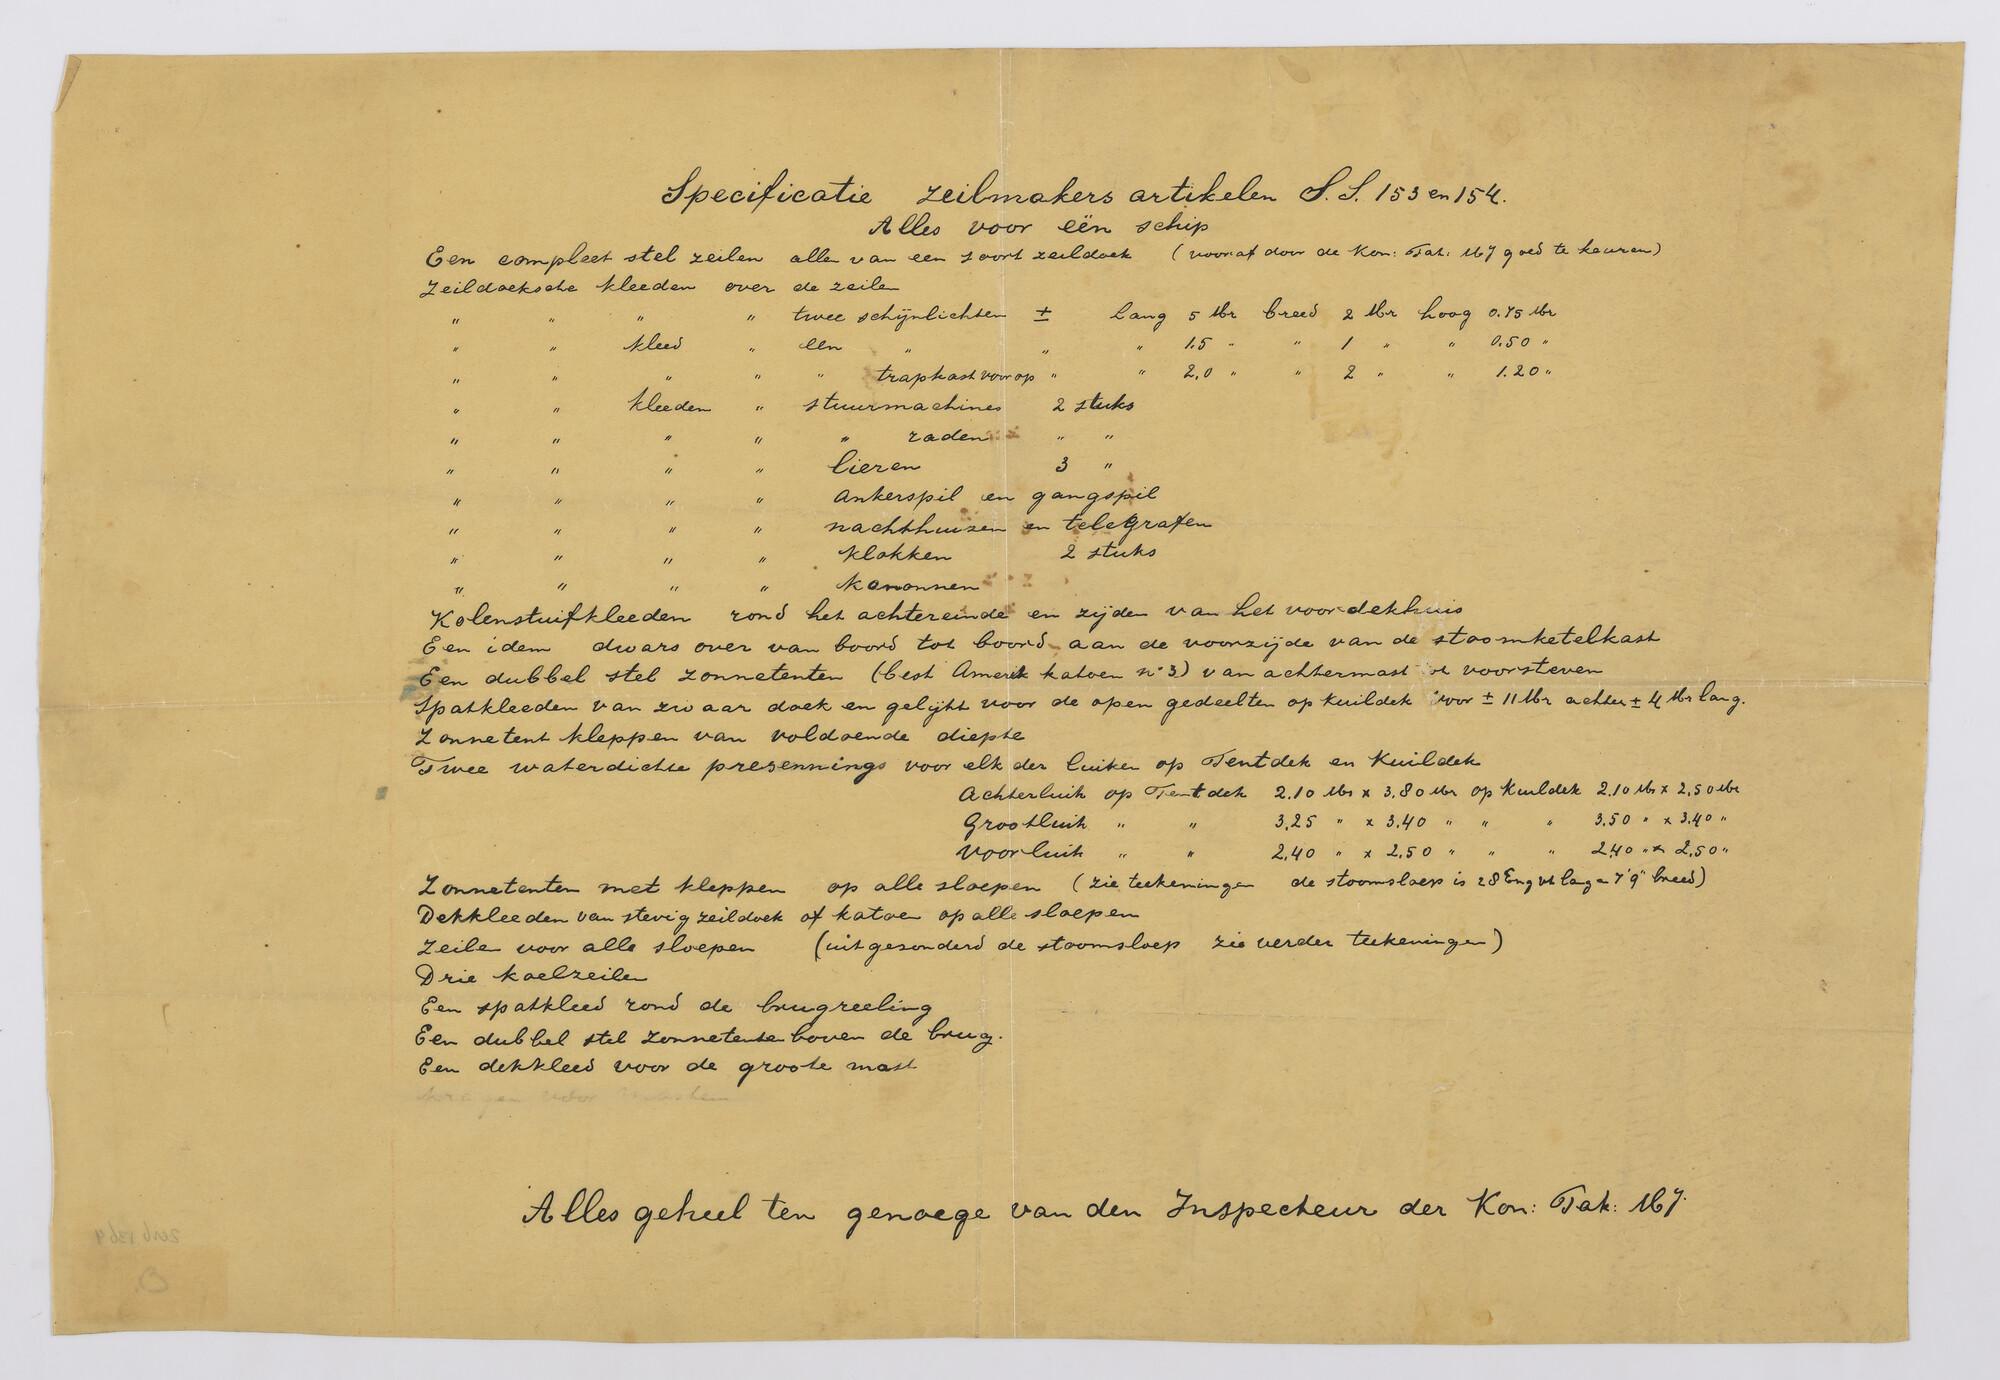 Specificatie zeilmakers artikelen S.S. 153 en 154.
Alles voor eën schip
Een compleet stel zeilen allen van een soort zeildoek (vooraf door de Kon: Pak: Mij goed te keuren)
Zeildoeksche kleeden over de zeilen
" " " " twee schijnlichten ± lang 5 Mtr breed 2 Mtr hoog 0.75 Mtr
" " kleed " een " " " 1.5 " " 1 " " 0.50 "
" " " " " trapkast voorop " " 2,0 " " 2 " " 1.20 "
" " kleeden " stuurmachines 2 stuks
" " " " " raden " "
" " " " lieren 3 "
" " " " ankerspil en gangspil
" " " " nachthuizen en telegrafen
" " " " klokken 2 stuks
" " " " kanonnen
Kolenstuifkleeden rond het achtereinde en zijden van het voordekhuis
Een idem dwars over van boord tot boord aan de voorzijde van de stoomketelkast
Een dubbel stel zonnetenten (best Amerik katoen n° 3) van achtermast tot voorsteven
Spatkleeden van zwaar doek en gelijkt voor de open gedeelten op kuildek voor ± 11 Mtr achter ± 4 Mtr lang.
Zonnetent kleppen van voldoende diepte
Twee waterdichte presennings voor elk der luiken op Tentdek en Kuildek
Achterluik op Tentdek 2.10 Mtr x 3.80 Mtr op Kuildek 2.10 Mtr x 2,50 Mtr
Grootluik " " 3,25 " x 3.40 " " " 3.50 " x 3.40 "
Voorluik " " 2,40 " x 2,50 " " " 2,40 " x 2,50 "
Zonnetenten met kleppen op alle sloepen (zie teekeningen de stoomsloep is 28 Eng vt lang en 7'9" breed)
Dekkleeden van stevig zeildoek of katoen op alle sloepen
Zeilen voor alle sloepen (uitgesonderd de stoomsloep zie verder teekeningen)
Drie koelzeilen
Een spatkleed rond de brugreeling
Een dubbel stel zonnetenten boven de brug.
Een dekkleed voor de groote mast
kragen voor
Alles geheel ten genoege van den Inspecteur der Kon: Pak: Mij.